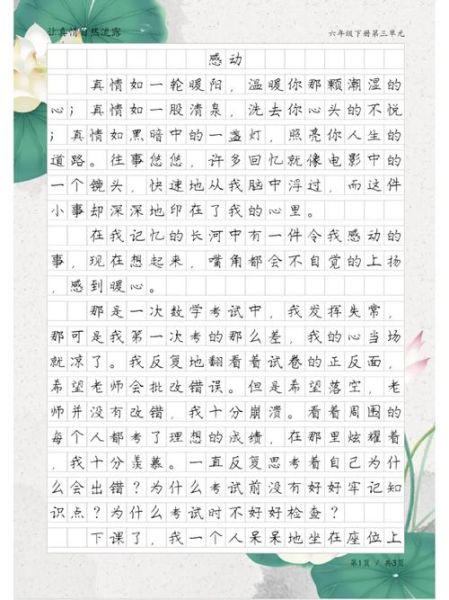 让真情自然流露
六年级下册第三单元
感动
真情如一轮暖阳，温暖你那颗潮湿的
心；真情如一股清泉，洗去你心头的不悦
；真情如黑暗中的一盏灯，照亮你人生的
道路。往事悠悠，许多回忆就像电影中的
一个镜头，快速地从我脑中浮过，而这件
小事却深深地印在了我的心里。
在我记忆的长河中有一件令我感动的
事，现在想起来，嘴角都会不自觉的上扬
，感到暖心。
那是一次数学考试中，我发挥失常，
那可是我第一次考的那么差，我的心当场
就凉了。我反复地翻看着试卷的正反面，
希望老师会批改错误。但是希望落空，老
师并没有改错，我十分崩溃。看着周围的
每个人都考了理想的成绩，在那里炫耀着
，我十分羡慕。一直反复思考着自己为什
么会出错？为什么考试前没有好好牢记知
识点？为什么考试时不好好检查？
下课了，我一个人呆呆地坐在座位上
第1页 / 共3页